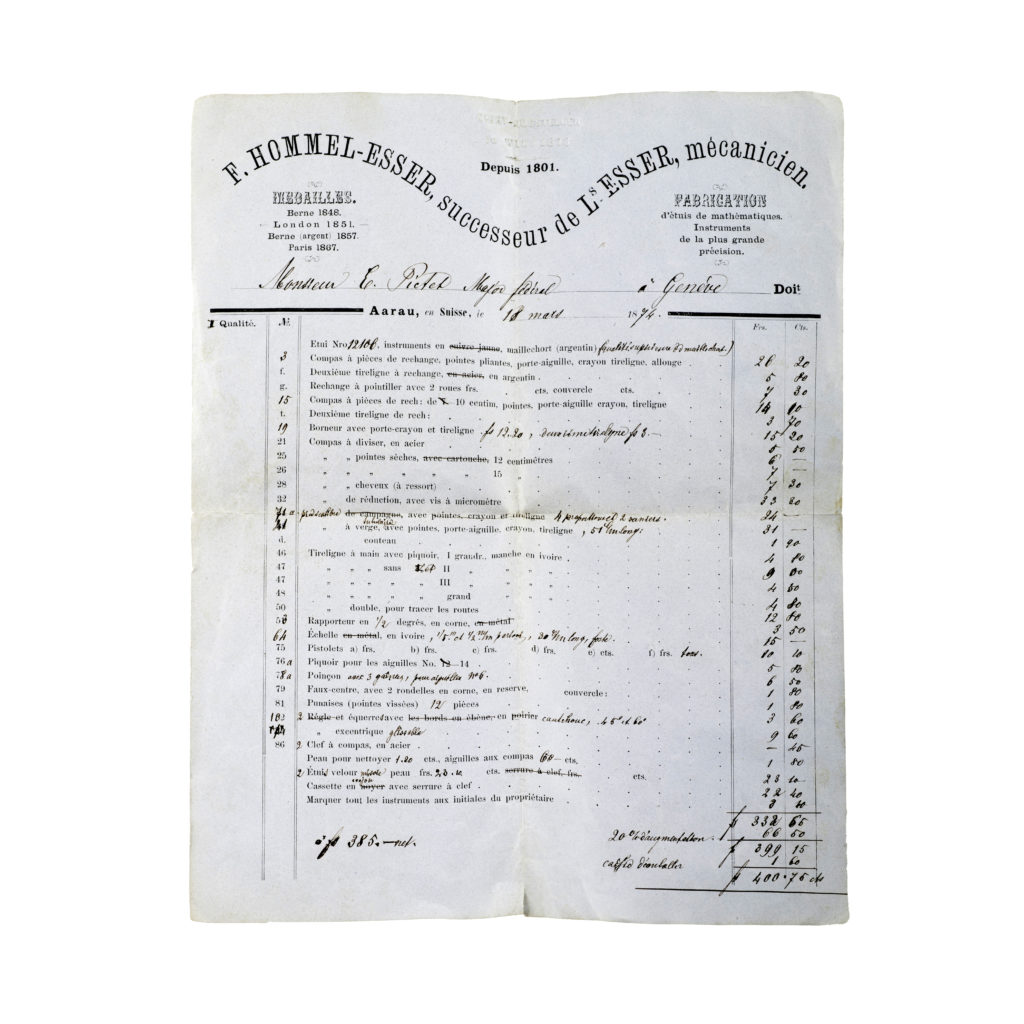 F. HOMMEL-ESSER, successeur de Ls ESSER, mécanicien.
Depuis 1801.
MEDAILLES.
Berne 1848.
London 1851.
Berne (argent) 1857.
Paris 1867.
FABRICATION
d'étuis de mathématiques.
Instruments
de la plus grande
précision.
Monsieur E. Pictet Major fédéral à Genève Doit
Aarau, en Suisse, le 18 mars 1874.
I Qualité. № Frs. Cts.
Etui Nro 12106, instruments en cuivre jaune, maillechort (argentin)
3 Compas à pièces de rechange, pointes pliantes, porte-aiguille, crayon tireligne, allonge 26 20
f. Deuxième tireligne à rechange, en acier, en argentin 5 80
g. Rechange à pointiller avec 2 roues frs. cts, couvercle cts. 7 30
15 Compas à pièces de rech: de 10 centim, pointes, porte-aiguille crayon, tireligne 14
t. Deuxième tireligne de rech: 3 70
19 Borneur avec porte-crayon et tireligne fs 12.20, 15 20
21 Compas à diviser, en acier 5 50
25 " " pointes sèches, avec cartouche, 12 centimètres 6 —
26 " " " " " 15 " 7 —
28 " " cheveux (à ressort) 7 30
32 " de réduction, avec vis à micromètre 33 20
de campagne, avec pointes, crayon et tireligne 24 —
" à verge, avec pointes, porte-aiguille, crayon, tireligne, 51 long: 31
d. couteau 1 90
46 Tireligne à main avec piquoir, I grandr., manche en ivoire 4 80
47 " " " sans II " " " 9
47 " " " " III " " " 4
48 " " " " grand " " " 4 80
50 " double, pour tracer les routes 12 80
Rapporteur en 1/2 degrés, en corne, en métal 3 50
64 Échelle en métal, en ivoire, 15 —
75 Pistolets a) frs. b) frs. c) frs. d) frs. e) cts. f) frs. tous. 10 10
76 a Piquoir pour les aiguilles No. 13—14 5 80
78 a Poinçon avec 3 pour aiguilles No 6. 6 50
79 Faux-centre, avec 2 rondelles en corne, en reserve, couvercle: 1 80
81 Punaises (pointes vissées) 12 pièces 1 80
102 2 Règle et équerres avec les bords en ébène, en poirier caoutchouc, 45° et 60° 3 60
" excentrique 9 60
86 2 Clef à compas, en acier — 45
Peau pour nettoyer 1.20 cts., aiguilles aux compas 60 — cts. 1 80
2 Étuis velour peau frs. 23.10 cts. serrure à clef, frs. cts. 23 10
Cassette en noyer avec serrure à clef 22 40
Marquer tout les instruments aux initiales du propriétaire
fs 332 65
20 % d'augmentation. 66 50
fs 399 15
1 60
fs 400.75 cts
à fs 385.— net.